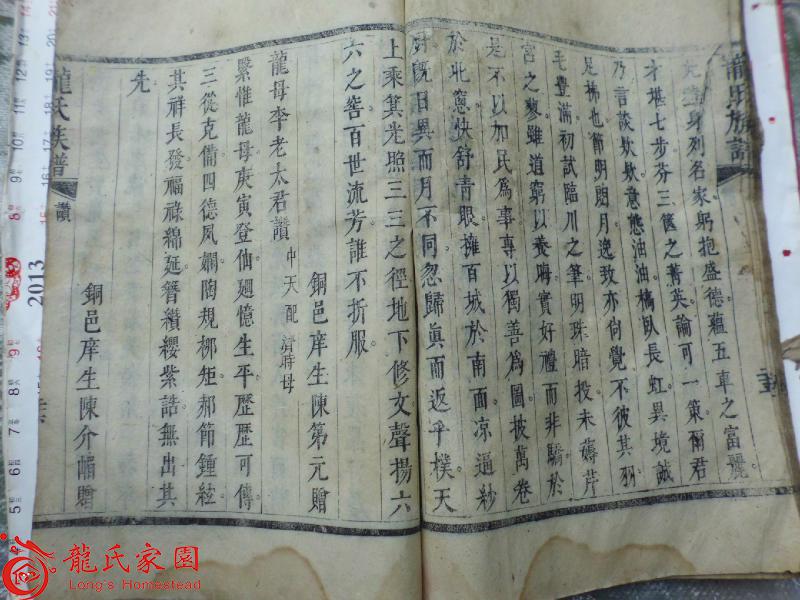 龍氏族譜
先登身列名家躬抱盛德蘊五車之富麗
才堪七步芬三篋之菁英論可一策爾君
乃言談欵欵意態油油橋臥長虹異境誠
足梯也節明朗月逸致亦向覺不彼其羽
毛豐滿初試臨川之筆明珠暗投未薦芹
宮之藜雖道窮以養晦實好禮而非驕於
是不以加民為事專以獨善為圖披萬卷
於北窓快舒青眼擁百城於南面凉逼紗
厨旣日異而月不同忽歸真而返乎樸天
上乘箕光照三三之徑地下修文聲揚六
六之窖百世流芳誰不折服
銅邑庠生陳第元贈
龍母李老太君讚
中天配 濟時母
繄惟龍母庚寅登仙廻憶生平歷歷可傳
三從克備四德夙嫻陶規栁矩郝節鍾絃
其祥長發福祿綿延簪纓紫誥無出其
先
銅邑庠生陳介嵋贈
龍氏族譜
讚
2013
龍氏家園
Long's Homestead